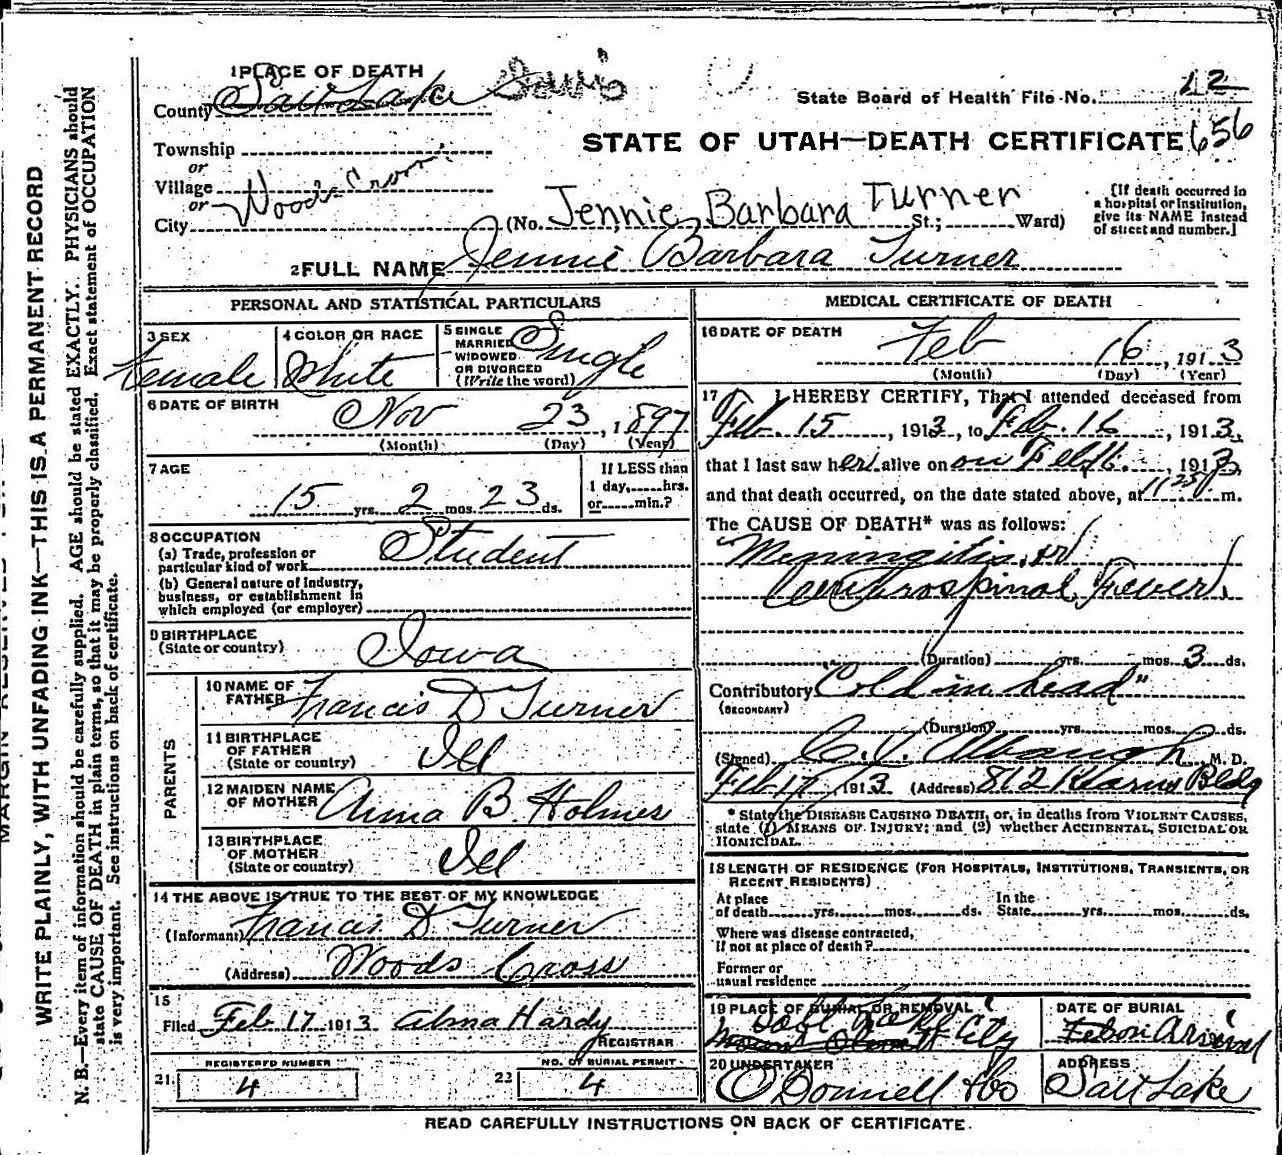 1 PLACE OF DEATH
County Salt Lake Davis
State Board of Health File No. 12
STATE OF UTAH—DEATH CERTIFICATE 656
Township
or
Village
or Woods Cross
City (No. Jennie Barbara Turner St.; Ward)
[If death occurred in
a hospital or institution,
give its NAME instead
of street and number.]
2 FULL NAME Jennie Barbara Turner
PERSONAL AND STATISTICAL PARTICULARS
3 SEX
Female
4 COLOR OR RACE
White
5 SINGLE
MARRIED
WIDOWED
OR DIVORCED
(Write the word)
Single
6 DATE OF BIRTH
Nov 23, 1897
(Month) (Day) (Year)
7 AGE
15 yrs. 2 mos. 23 ds.
If LESS than
1 day, hrs.
or min.?
8 OCCUPATION
(a) Trade, profession or
particular kind of work Student
(b) General nature of industry,
business, or establishment in
which employed (or employer)
9 BIRTHPLACE
(State or country) Iowa
PARENTS
10 NAME OF
FATHER Francis D Turner
11 BIRTHPLACE
OF FATHER
(State or country) Ill
12 MAIDEN NAME
OF MOTHER Anna B. Holmes
13 BIRTHPLACE
OF MOTHER
(State or country) Ill
14 THE ABOVE IS TRUE TO THE BEST OF MY KNOWLEDGE
(Informant) Francis D Turner
(Address) Woods Cross
15
Filed Feb 17 1913 Alma Hardy
REGISTRAR
REGISTERED NUMBER
21. 4
NO. OF BURIAL PERMIT
22 4
MEDICAL CERTIFICATE OF DEATH
16 DATE OF DEATH
Feb 16, 1913
(Month) (Day) (Year)
17 I HEREBY CERTIFY, That I attended deceased from
Feb. 15, 1913, to Feb. 16, 1913,
that I last saw her alive on on Feb 16., 1913,
and that death occurred, on the date stated above, at 11 25 m.
The CAUSE OF DEATH* was as follows:
Meningitis, or
Cerebrospinal Fever.
(Duration) yrs. mos. 3 ds.
Contributory "Cold in head"
(SECONDARY)
(Duration) yrs. mos. ds.
(Signed) M. D.
Feb 17, 1913 (Address) 812 Kearns Bldg
* State the DISEASE CAUSING DEATH, or, in deaths from VIOLENT CAUSES,
state (1) MEANS OF INJURY; and (2) whether ACCIDENTAL, SUICIDAL OR
HOMICIDAL.
18 LENGTH OF RESIDENCE (FOR HOSPITALS, INSTITUTIONS, TRANSIENTS, OR
RECENT RESIDENTS)
At place
of death yrs. mos. ds.
In the
State yrs. mos. ds.
Where was disease contracted,
if not at place of death?
Former or
usual residence
19 PLACE OF BURIAL OR REMOVAL
Salt Lake City
Mount Olivet
DATE OF BURIAL
on Arrival
20 UNDERTAKER
O'Donnell & Co
ADDRESS
Salt Lake
READ CAREFULLY INSTRUCTIONS ON BACK OF CERTIFICATE.
WRITE PLAINLY, WITH UNFADING INK—THIS IS A PERMANENT RECORD
N. B.—Every item of information should be carefully supplied. AGE should be stated EXACTLY. PHYSICIANS should
state CAUSE OF DEATH in plain terms, so that it may be properly classified. Exact statement of OCCUPATION
is very important. See instructions on back of certificate.